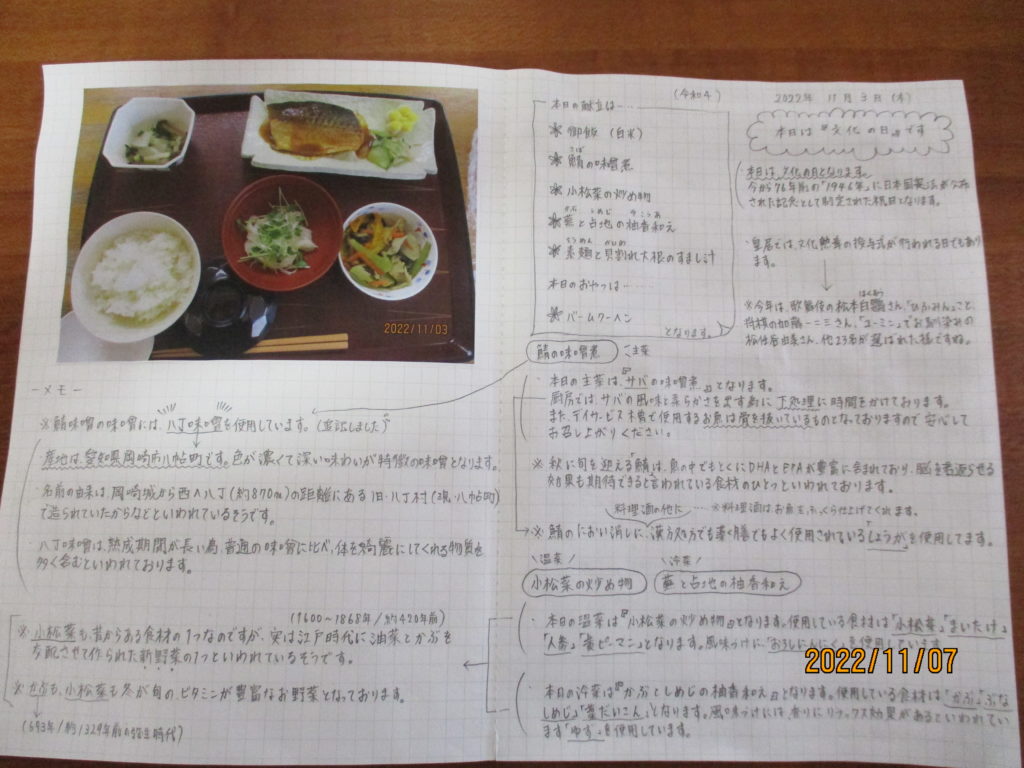 2022/11/03
ーメモー
※鯖味噌の味噌には、八丁味噌を使用しています。(確認しました)
産地は、愛知県岡崎市八帖町です。色が濃くて深い味わいが特徴の味噌となります。
名前の由来は、岡崎城から西へ八丁(約870m)の距離にある旧・八丁村(現・八帖町)
で造られていたからなどといわれているそうです。
八丁味噌は、熟成期間が長い為、普通の味噌に比べ、体を綺麗にしてくれる物質を
多く含むといわれております。
(1600~1868年/約420年前)
※小松菜も昔からある食材の1つなのですが、実は江戸時代に油菜とかぶを
交配させて作られた新野菜の1つといわれているそうです。
※かぶも、小松菜も冬が旬の、ビタミンが豊富なお野菜となっております。
(693年/約1329年前の時代)
(令和4)
2022年 11月 3日 (木)
本日の献立は……
御飯 (白米)
さば
鯖の味噌煮
小松菜の炒め物
かぶ しめじ ゆこうあ
蕪と占地の柚香和え
そうめん かいわれ
素麺と貝割れ大根のすまし汁
本日のおやつは……
バームクーヘン
となります。
本日は『文化の日』です
本日は、文化の日となります。
今から76年前の「1946年」に日本国憲法が公布
された記念として制定された祝日となります。
・皇居では、文化勲章の授与式が行われる日でもあり
ます。
はくおう
※今年は、歌舞伎の松本白鸚さん、「ひふみん」こと、
将棋の加藤一二三さん、「ユーミン」でお馴染みの
松任谷由実さん、他23名が選ばれた様ですね。
鯖の味噌煮 主菜
・本日の主菜は、『サバの味噌煮』となります。
厨房では、サバの風味と柔らかさを出す為に下処理に時間をかけております。
また、デイサービスで使用するお魚は骨を抜いているものとなっておりますので安心して
お召し上がりください。
※秋に旬を迎える「鯖」は、魚の中でもとくにDHAとEPAが豊富に含まれており、脳を若返らせる
効果も期待できると言われている食材のひとつといわれております。
料理酒の他に … ※料理酒はお魚をふっくら仕上げてくれます。
※鯖のにおい消しに、漢方処方でも薬膳でもよく使用されている「しょうが」を使用してます。
温菜
冷菜
小松菜の炒め物
蕪と占地の柚香和え
・本日の温菜は『小松菜の炒め物』となります。使用している食材は「小松菜」「まいたけ」
「人参」「黄ピーマン」となります。風味つけに「おろしにんにく」を使用しています。
・本日の冷菜は『かぶとしめじの柚香和え』となります。使用している食材は「かぶ」「ぶな
しめじ」「葉だいこん」となります。風味つけには、香りにリラックス効果があるといわれてい
ます「ゆず」を使用しています。
2022/11/07